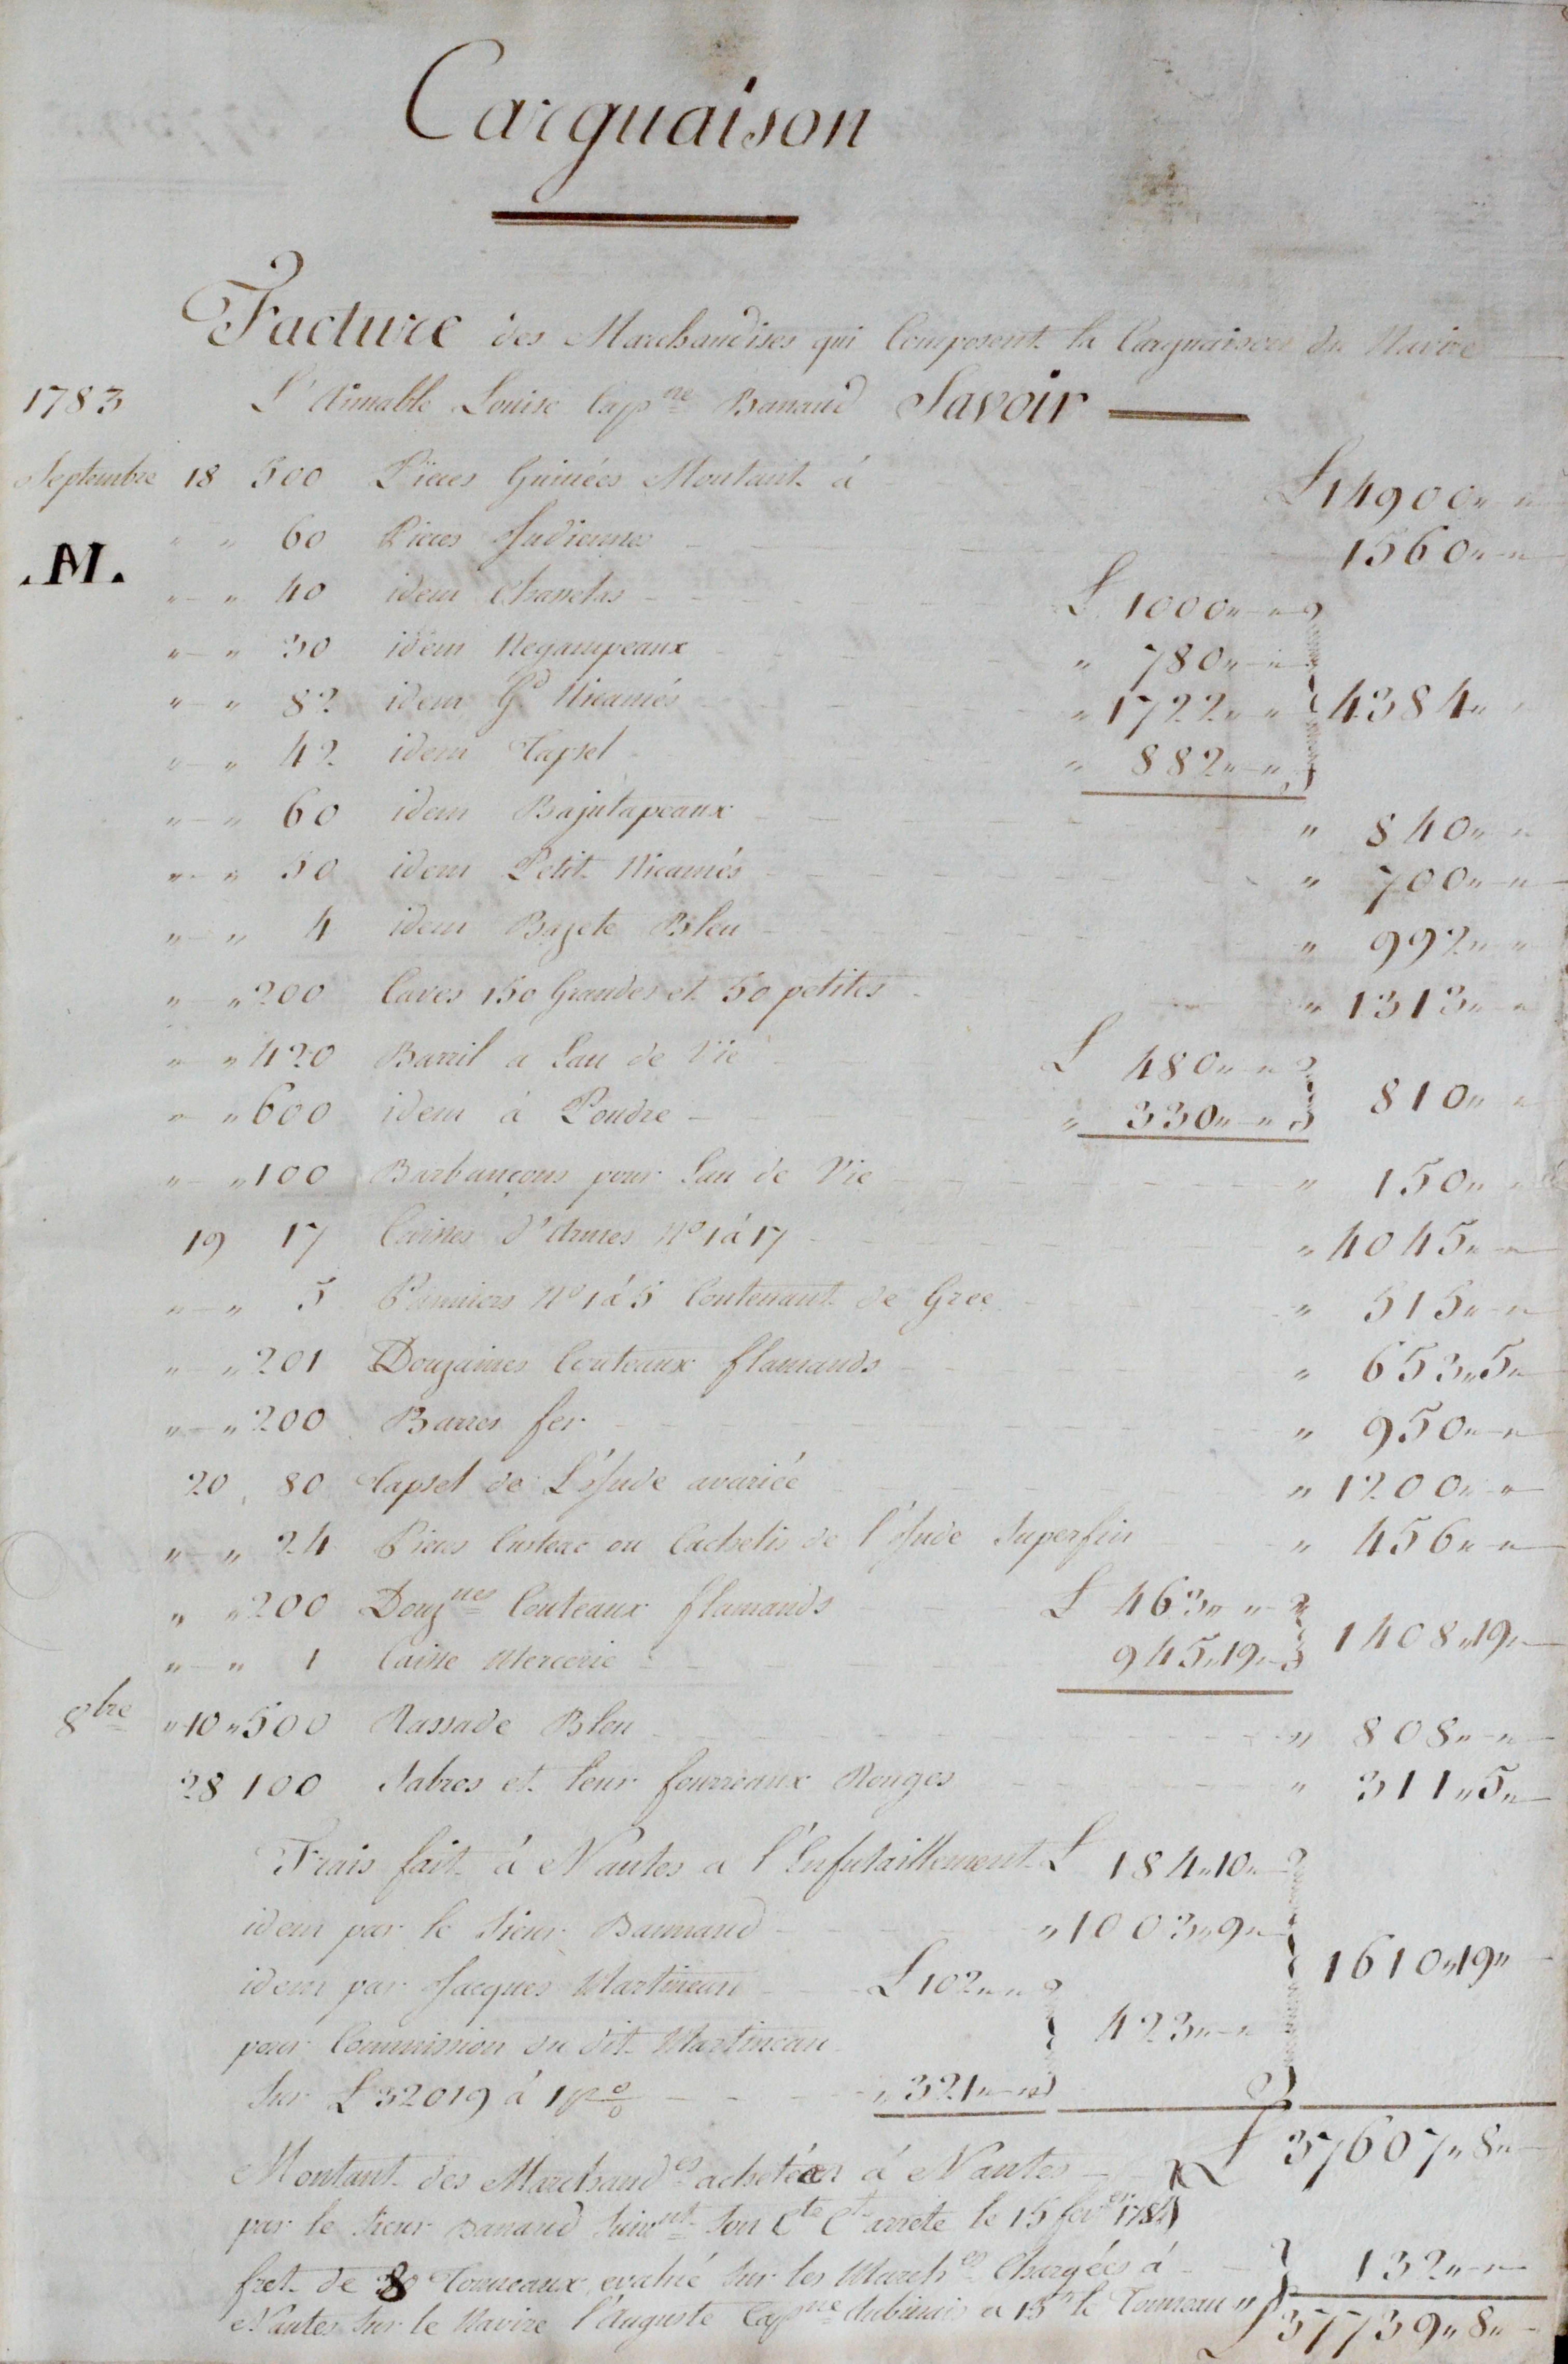 Carguaison
Facture des Marchandises qui Composent la Carguaison du Navire
1783 L'Aimable Louise Cap.ne Banaud Savoir
Septembre 18 500 Pieces Guinées Montant à £ 14900 " "
" " 60 Pieces Indiennes 1560 " "
.M.
" " 40 idem Chaselas £ 1000 " "
" " 30 idem Negampeaux " 780 " "
" " 82 idem Gd Nicanés " 1722 " " 4384 "
" " 42 idem Tapsel " 882 " "
" " 60 idem Bajutapeaux " 840 " "
" " 50 idem Petit Nicanés " 700 " "
" " 4 idem Bazete Bleu " 992 " "
" " 200 Caves 150 Grandes et 50 petites " 1313 " "
" " 420 Barril a Eau de Vie £ 480 " "
" " 600 idem à Poudre " 330 " " 810 " "
" " 100 Barbançons pour Eau de Vie " 150 " "
19 17 Caisses d'Armes No 1 à 17 " 4045 " "
" " 5 Panniers No 1 à 5 Contenant de Gree " 515 " "
" " 201 Douzaines Couteaux flamands " 653 " 5 "
" " 200 Barres fer " 950 " "
20 80 Tapsel de L'Inde avariée " 1200 " "
" " 24 Pieces ou Cachelis de l'Inde Superfin " 456 " "
" " 200 Douz.nes Couteaux flamands £ 463 " "
" " 1 Caisse Mercerie 945 " 19 " 1408 " 19 "
8bre " 10 " 500 Rassade Bleu " 808 " "
28 100 Sabres et leur fourreaux Rouges " 311 " 5 "
Frais fait à Nantes a l'Enfutaillement £ 184 " 10 "
idem par le Sieur Bannaud " 1003 " 9 "
idem par Jacques Martineau £ 102 " " 1610 " 19 "
pour Commission du dit Martineau 423 " "
Sur £ 32019 à 1 p o/o " 321 " "
Montant des Marchand.es achetées à Nantes £ 37607 " 8 "
par le Sieur Banaud Suiv.nt Son C.te C.t arrete le 15 fev.er 1784
fret de 8 Tonneaux evalué Sur les March.es Chargées à 132 " "
Nantes Sur le Navire l'Auguste Cap.ne a 15 le Tonneau £ 37739 " 8 "